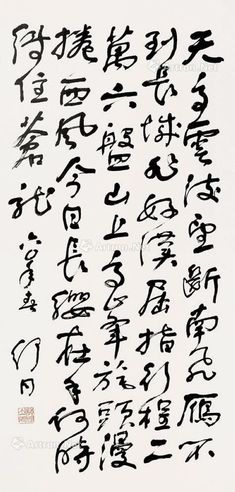 天高雲淡望斷南飛雁不
到長城非好漢屈指行程二
萬六盤山上高峰旄頭漫
捲西風今日長纓在手何時
縛住蒼龍 年春 舒同
Artron.Net